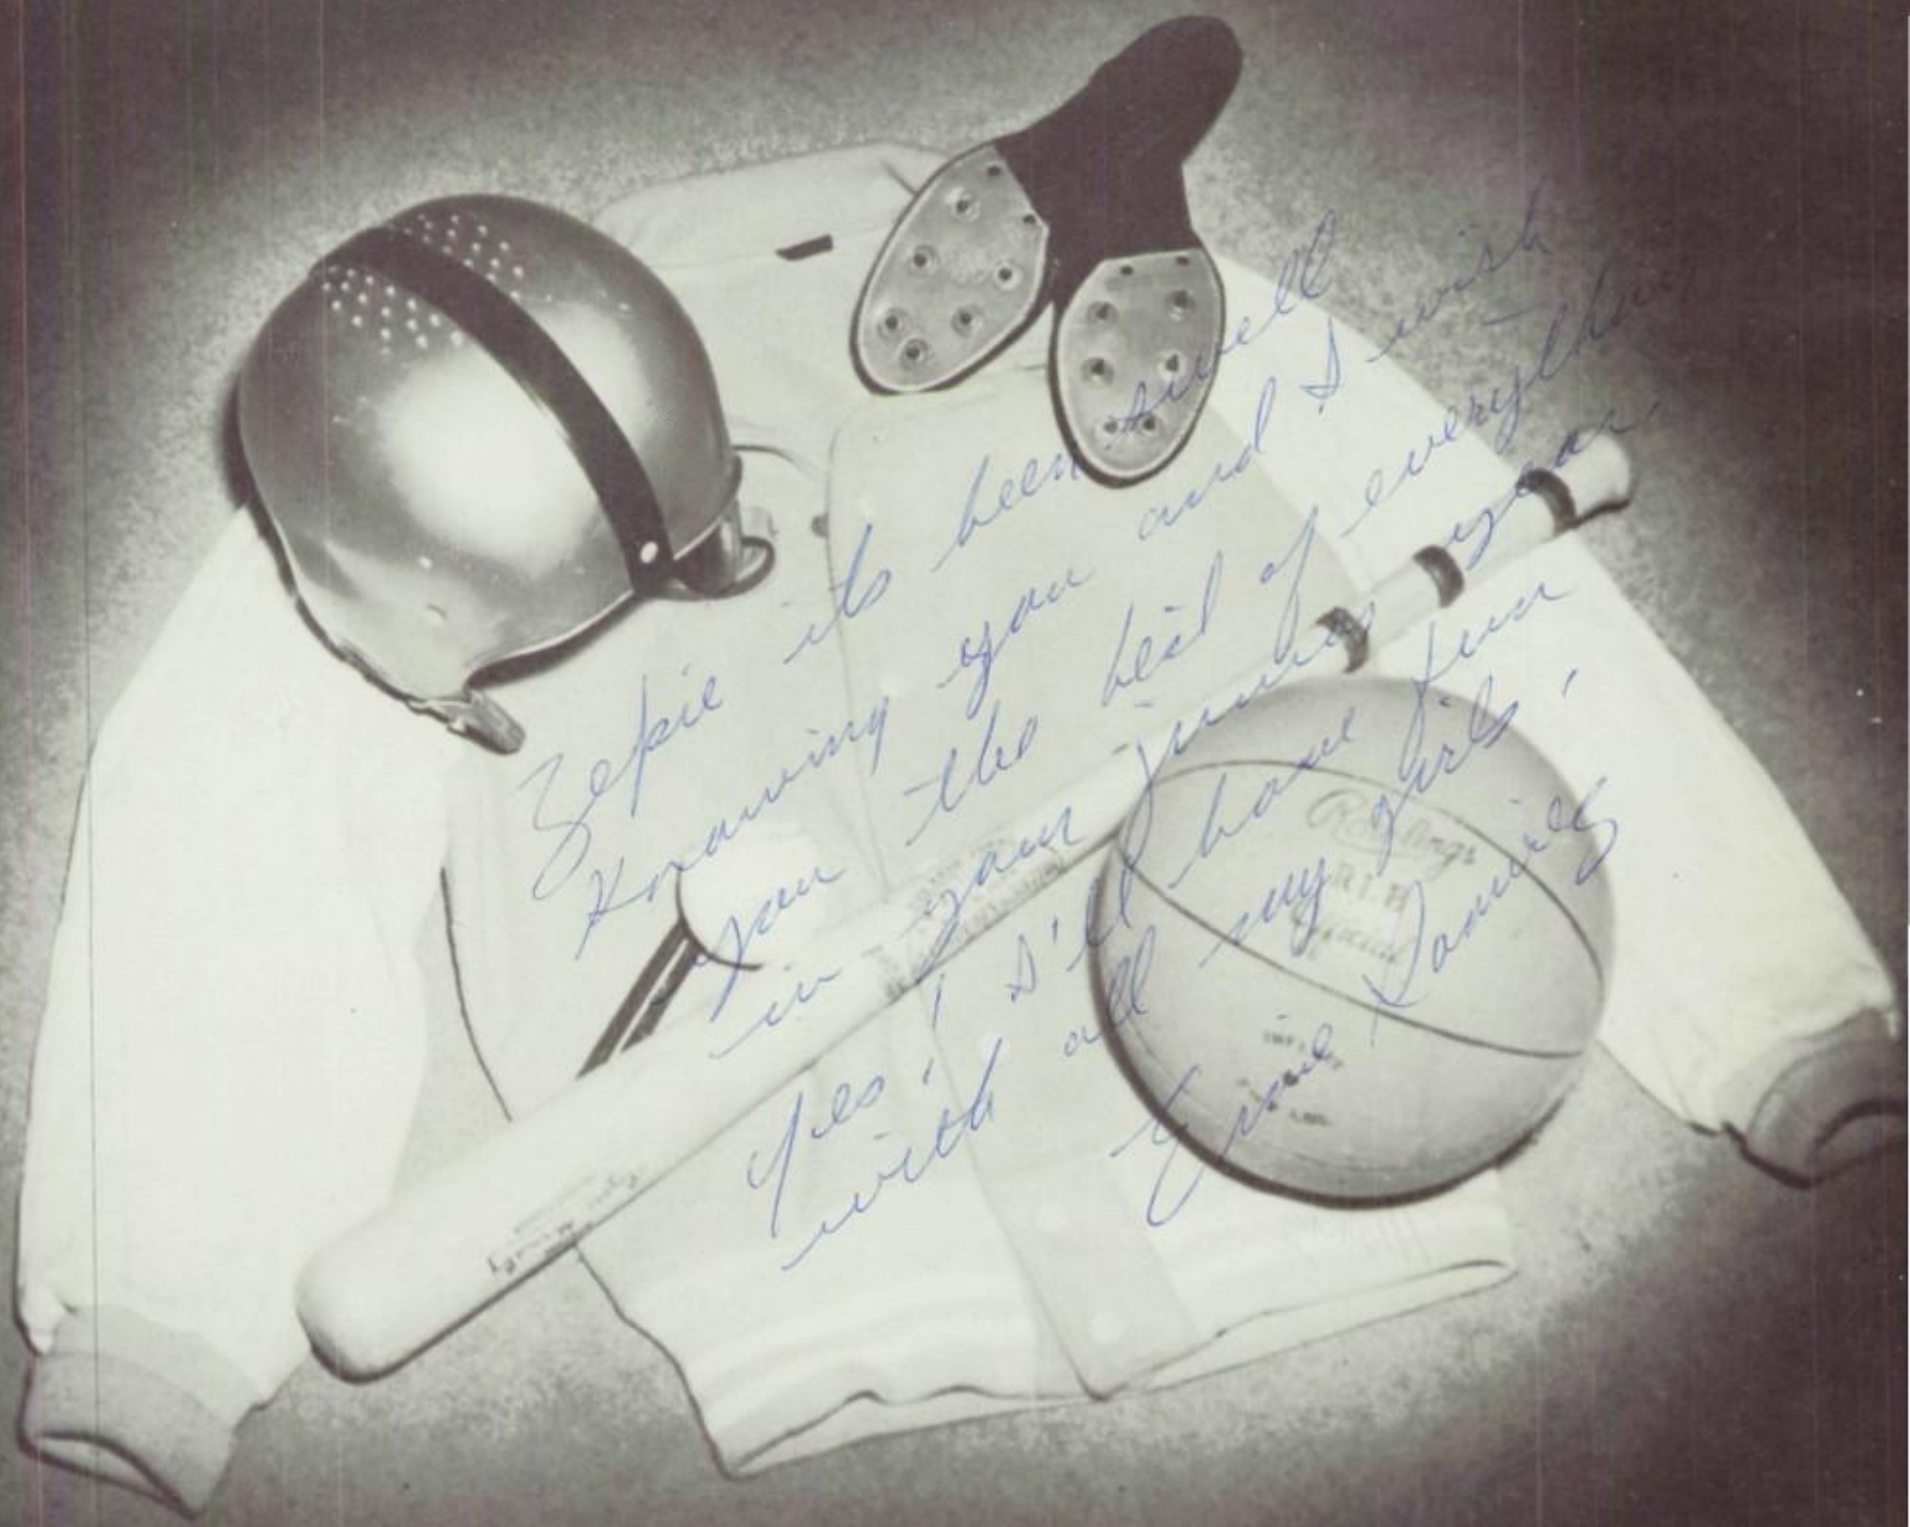 Zepie its been swell
Knowing you and I wish
you the best of everything
in your junior year.
Yes! I'll have fun
with all my girls!
Ernie
Rawlings